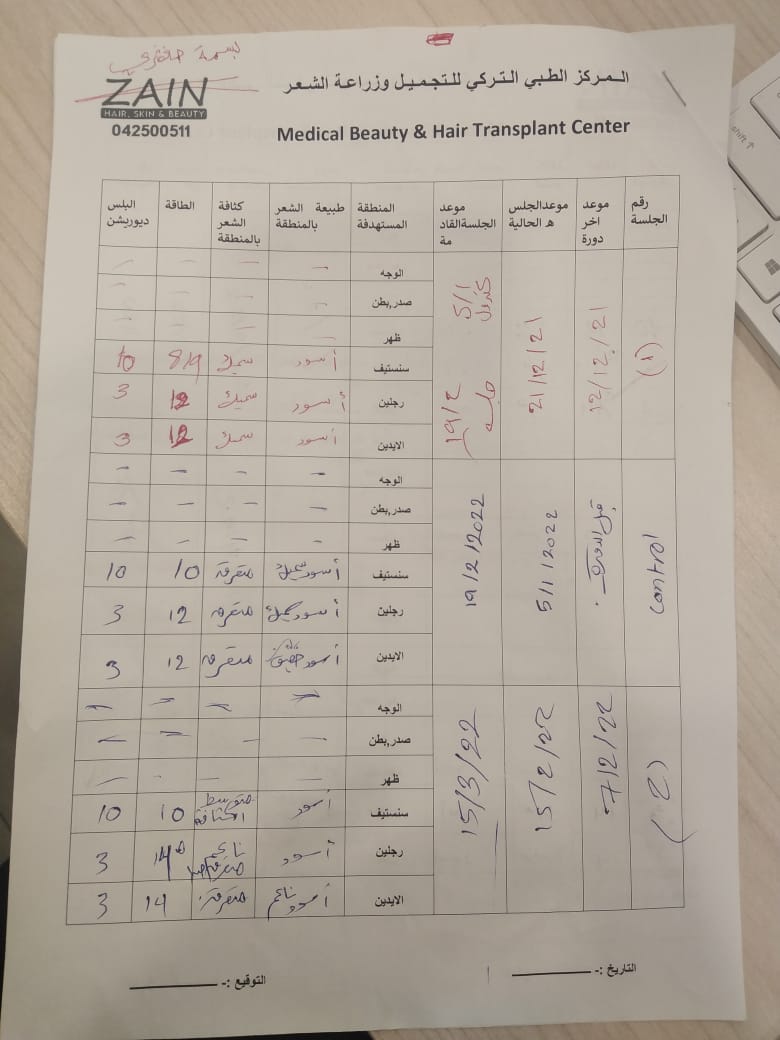 بسمة
ZAIN
HAIR, SKIN & BEAUTY
042500511
المركز الطبي التركي للتجميل وزراعة الشعر
Medical Beauty & Hair Transplant Center
رقم الجلسة
موعد اخر دورة
موعدالجلسه الحالية
موعد الجلسةالقادمة
المنطقة المستهدفة
طبيعة الشعر بالمنطقة
كثافة الشعر بالمنطقة
الطاقة
البلس ديوريشن
(1)
12/12/21
21/12/21
5/1 كنترول
19/2 جلسة
الوجه - - - -
صدر,بطن - - - -
ظهر - - - -
سنستيف أسود سميك 8/9 10
رجلين أسود سميك 12 3
الايدين أسود سميك 12 3
control
قبل الدورة
5/1/2022
19/2/2022
الوجه - - - -
صدر,بطن - - - -
ظهر - - - -
سنستيف أسود سميك متفرقة 10 10
رجلين أسود سميك متفرقة 12 3
الايدين أسود متفرقة 12 3
(2)
7/2/22
15/2/22
15/3/22
الوجه - - - -
صدر,بطن - - - -
ظهر - - - -
سنستيف أسود متوسط الكثافة 10 10
رجلين أسود ناعم 14 3
الايدين أسود ناعم متفرقة 14 3
التاريخ :-
التوقيع :-